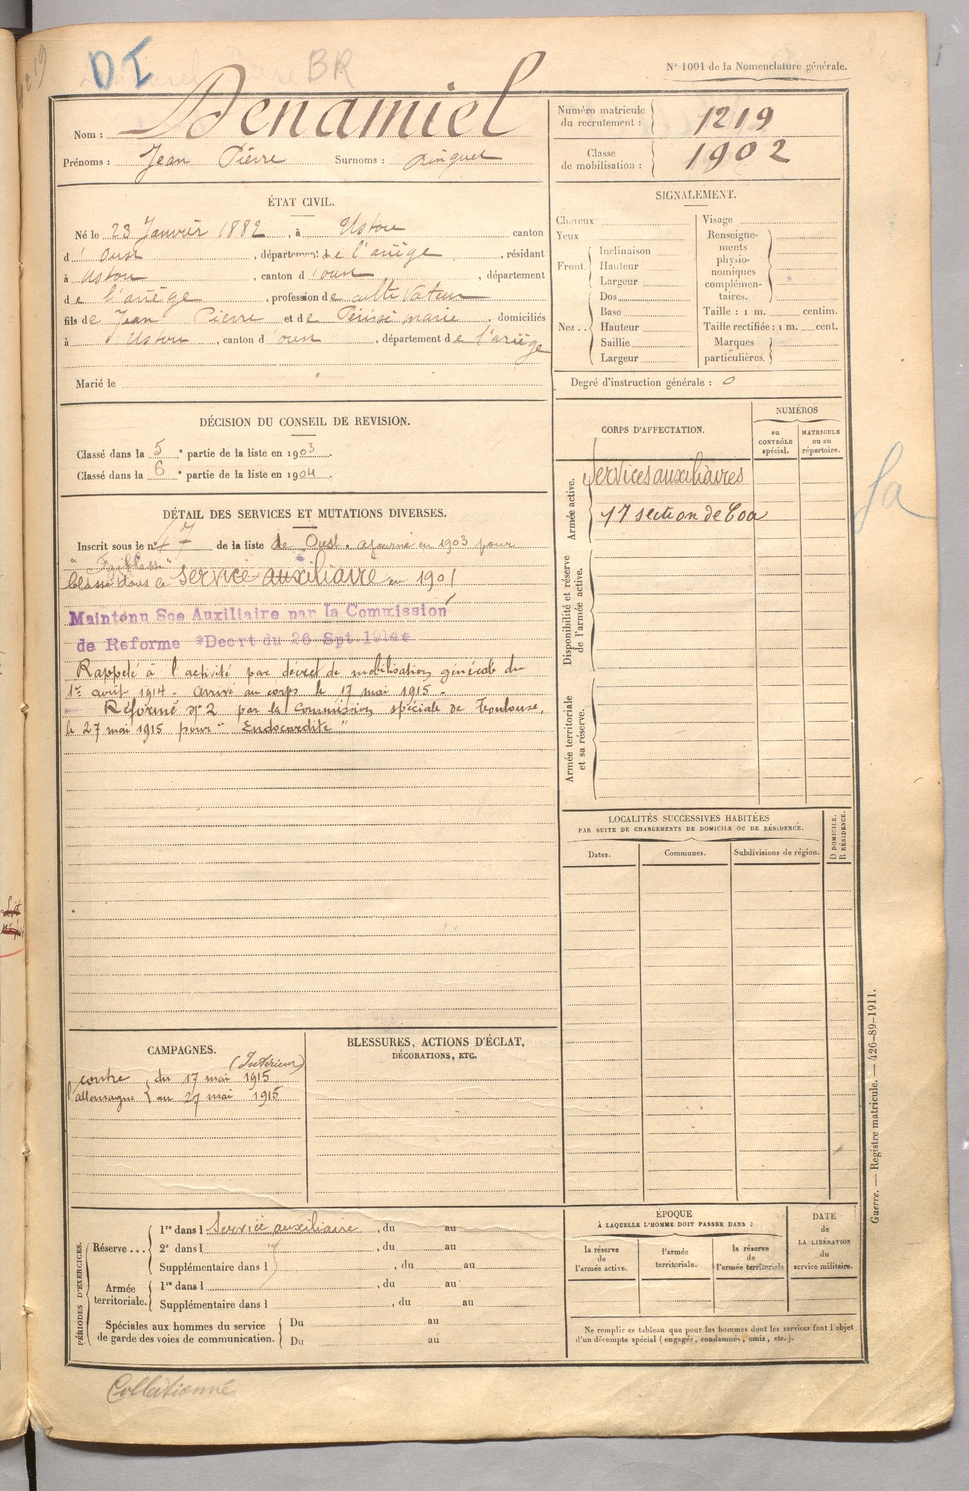 DI BR
N° 1001 de la Nomenclature générale.
Nom : Denamiel
Prénoms : Jean Pierre Surnoms :
Numéro matricule du recrutement : 1219
Classe de mobilisation : 1902
ÉTAT CIVIL.
Né le 23 Janvier 1882, à Ustou canton
d'Oust, département de l'ariège, résidant
à Ustou, canton d'oust, département
de l'ariège, profession de cultivateur
fils de Jean Pierre et de marie, domiciliés
à Ustou, canton d'oust, département de l'ariège
Marié le
SIGNALEMENT.
Cheveux
Yeux
Front. Inclinaison
Hauteur
Largeur
Nez.. Dos
Base
Hauteur
Saillie
Largeur
Visage
Renseignements physionomiques complémentaires.
Taille : 1 m. centim.
Taille rectifiée : 1 m. cent.
Marques particulières.
Degré d'instruction générale : 0
DÉCISION DU CONSEIL DE REVISION.
Classé dans la 5e partie de la liste en 1903.
Classé dans la 6e partie de la liste en 1904.
DÉTAIL DES SERVICES ET MUTATIONS DIVERSES.
Inscrit sous le n° 47 de la liste de Oust. ajourné en 1903 pour
"Faiblesse"
Classé dans le service auxiliaire en 190
Maintenu Sce Auxiliaire par la Commission
de Reforme Decrt du 26 Spt
Rappelé à l'activité par décret de mobilisation générale du
1er août 1914 - arrivé au corps le 17 mai 1915 -
Réformé N° 2 par la Commission spéciale de Toulouse,
le 27 mai 1915 pour "Endocardite"
CORPS D'AFFECTATION.
NUMÉROS
au CONTRÔLE spécial.
MATRICULE ou au répertoire.
Armée active.
Services auxiliaires
17 section de Coa
Disponibilité et réserve de l'armée active.
Armée territoriale et sa réserve.
Sa
LOCALITÉS SUCCESSIVES HABITÉES
PAR SUITE DE CHANGEMENTS DE DOMICILE OU DE RÉSIDENCE.
Dates. Communes. Subdivisions de région.
D DOMICILE.
R RÉSIDENCE.
CAMPAGNES.
(Intérieur)
contre l'allemagne du 17 mai 1915
au 27 mai 1915
BLESSURES, ACTIONS D'ÉCLAT,
DÉCORATIONS, ETC.
PÉRIODES D'EXERCICES.
Réserve...
1re dans l Service auxiliaire, du au
2e dans l, du au
Supplémentaire dans l, du au
Armée territoriale.
1re dans l, du au
Supplémentaire dans l, du au
Spéciales aux hommes du service
de garde des voies de communication.
Du au
Du au
ÉPOQUE
À LAQUELLE L'HOMME DOIT PASSER DANS :
la réserve de l'armée active.
l'armée territoriale.
la réserve de l'armée territoriale
DATE de LA LIBÉRATION du service militaire.
Ne remplir ce tableau que pour les hommes dont les services font l'objet
d'un décompte spécial (engagés, condamnés, omis, etc.).
Guerre. — Registre matricule. — 426-89-1911.
Collationné